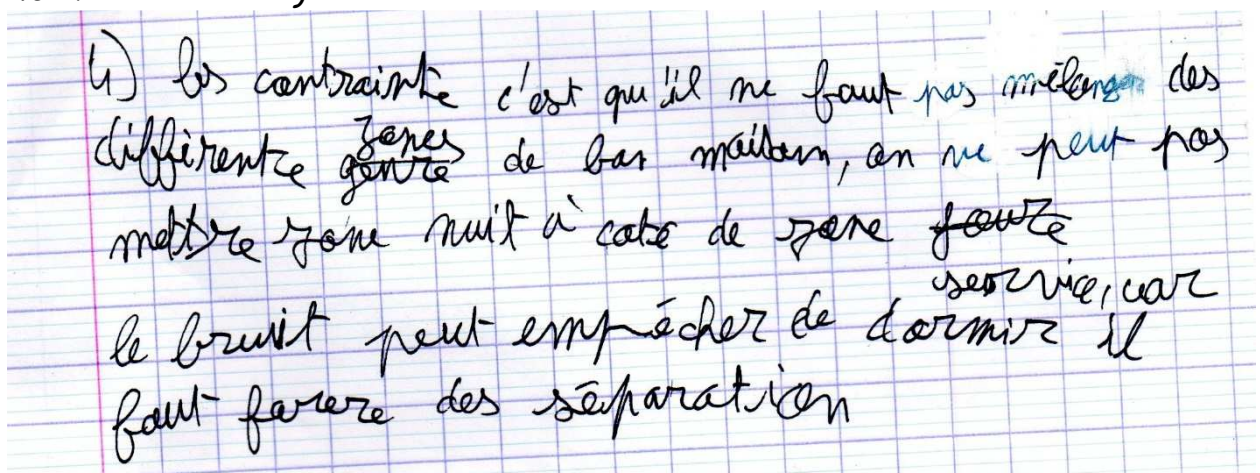 4) les contrainte c'est qu'il ne faut pas mélanger des
différente zones de bas maison, on ne peut pas
mettre zone nuit à coté de zone
service, car
le bruit peut empêcher de dormir il
faut farere des séparation